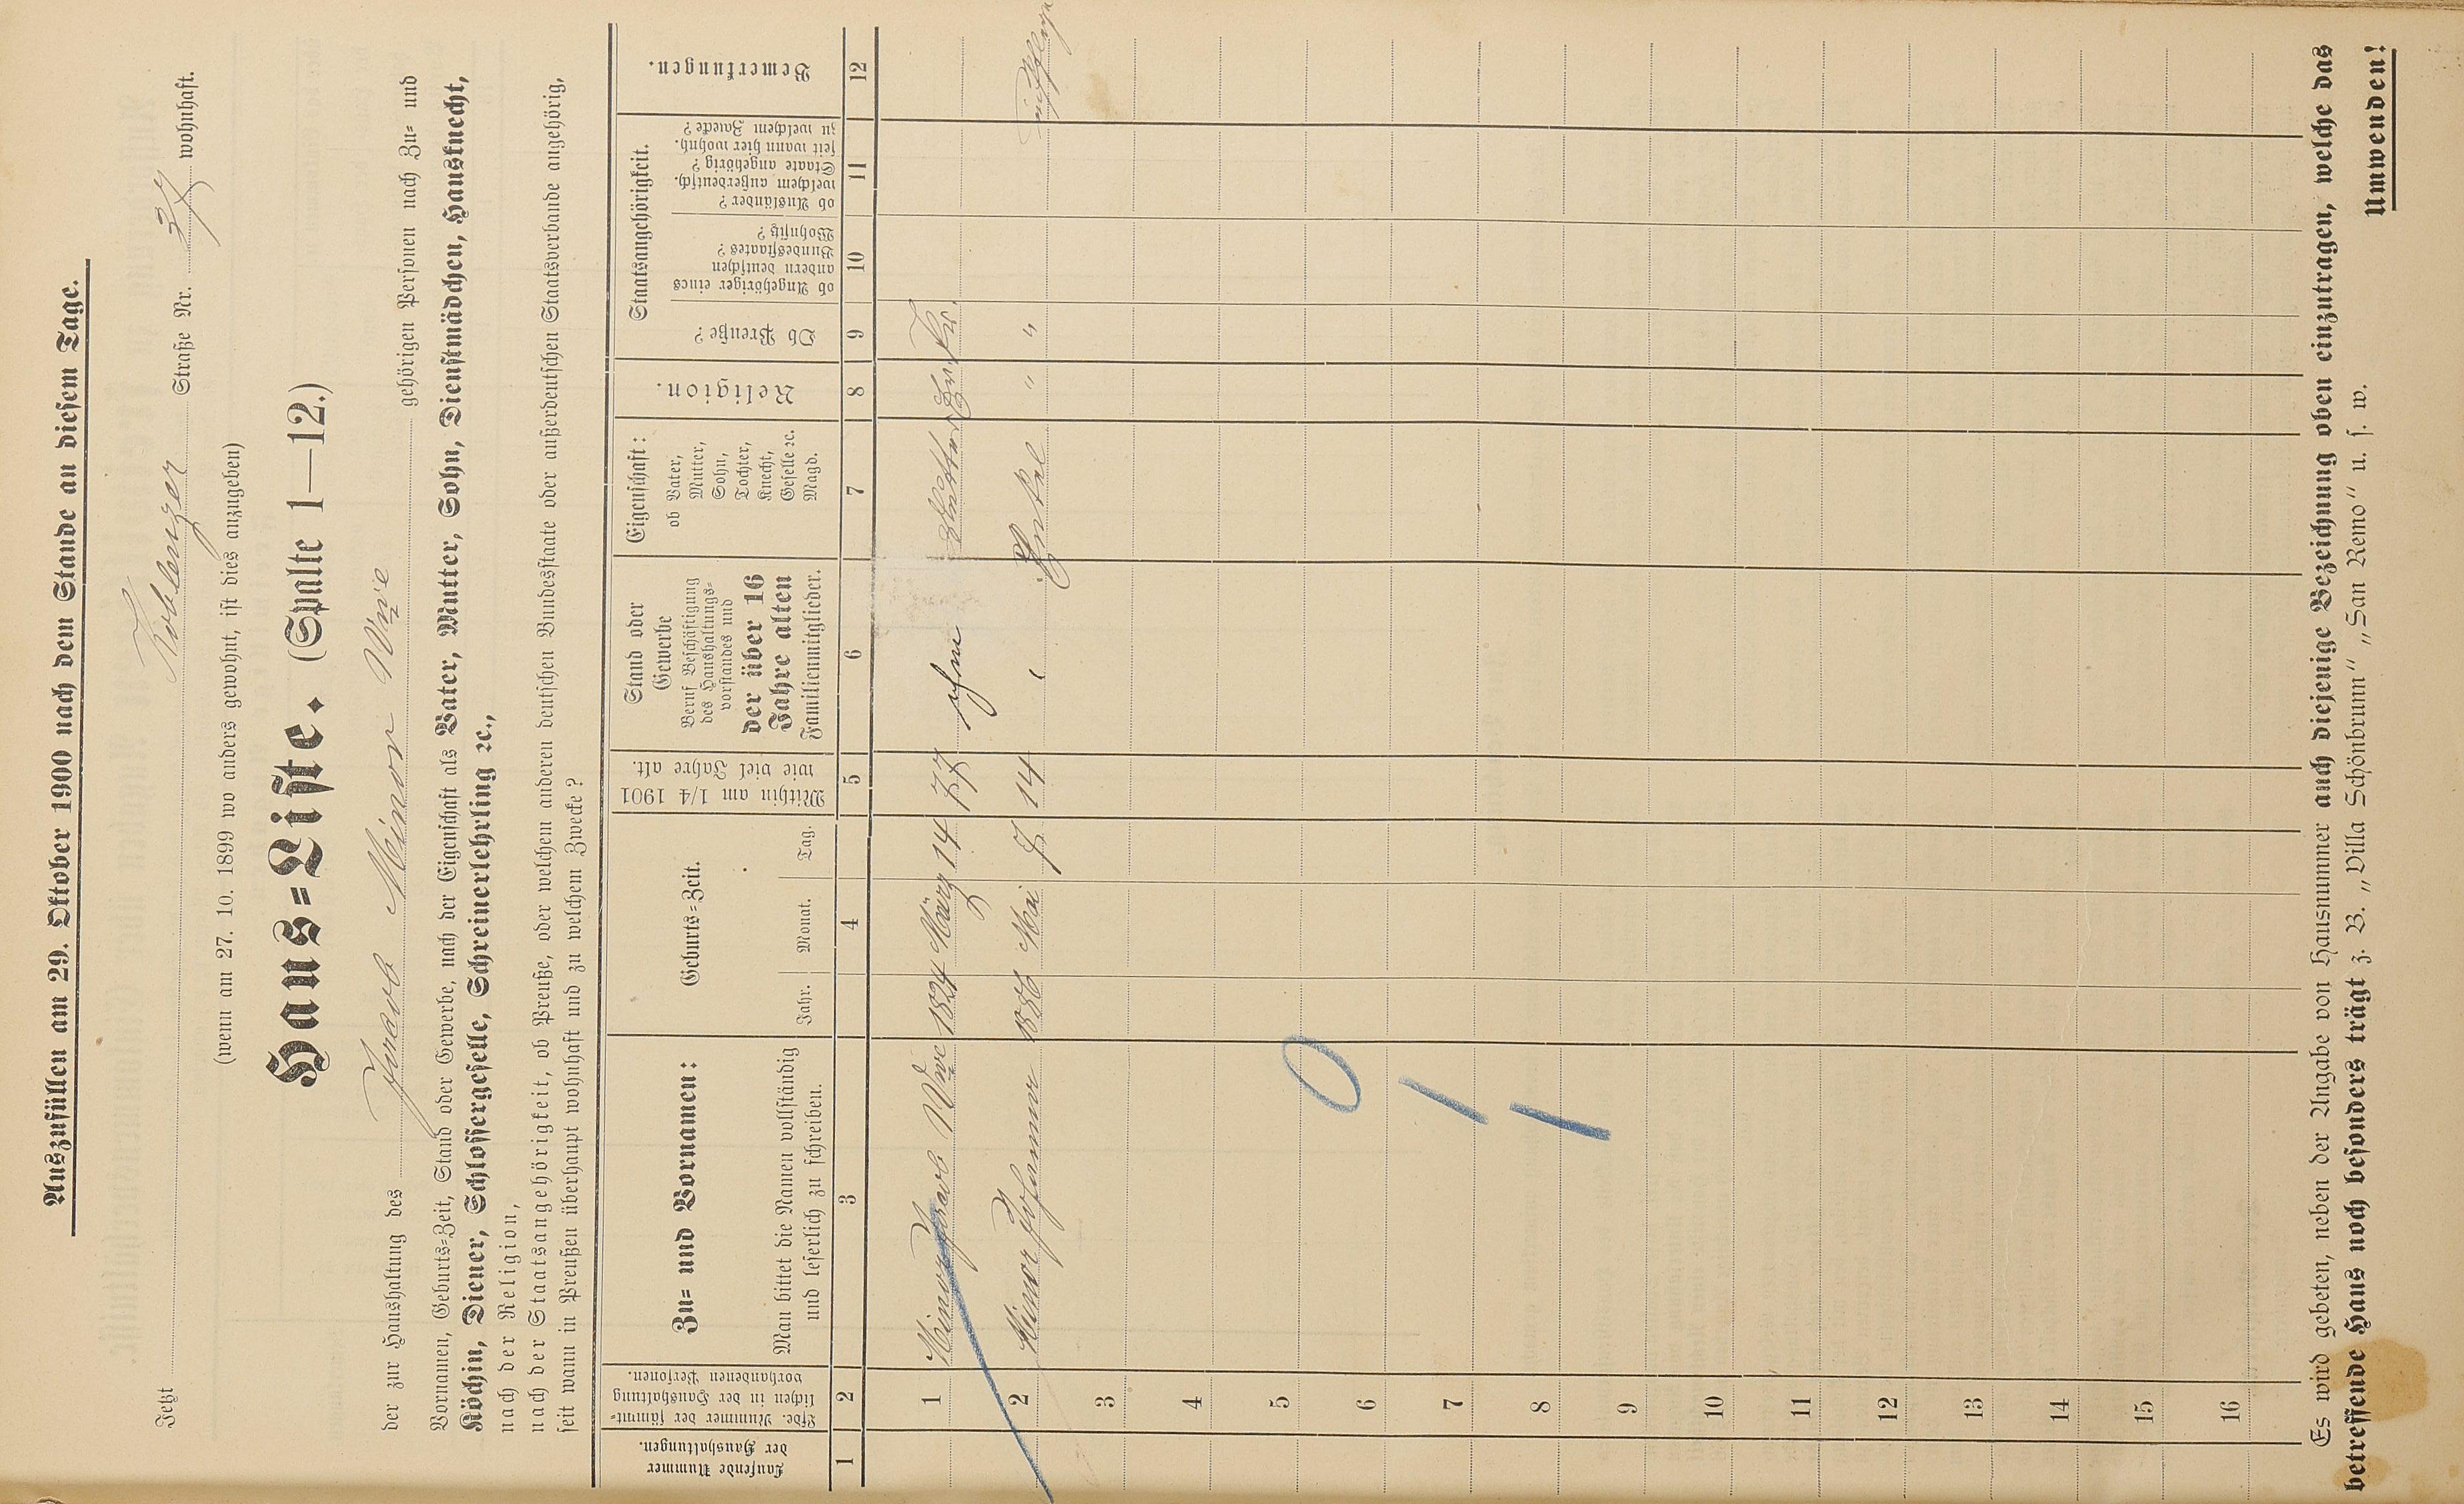 Auszufüllen am 29. Oktober 1900 nach dem Stande an diesem Tage.
Jetzt Koblenzer Straße Nr. 37 wohnhaft.
(wenn am 27. 10. 1899 wo anders gewohnt, ist dies anzugeben)
Haus=Liste. (Spalte 1—12.)
der zur Haushaltung des Meinor Wwe gehörigen Personen nach Zu= und
Vornamen, Geburts=Zeit, Stand oder Gewerbe, nach der Eigenschaft als Vater, Mutter, Sohn, Dienstmädchen, Hausknecht,
Köchin, Diener, Schlossergeselle, Schreinerlehrling ꝛc.,
nach der Religion,
nach der Staatsangehörigkeit, ob Preuße, oder welchem anderen deutschen Bundesstaate oder außerdeutschen Staatsverbande angehörig,
seit wann in Preußen überhaupt wohnhaft und zu welchem Zwecke?
Laufende Nummer der Haushaltungen.
Lfde. Nummer der sämmt=
lichen in der Haushaltung
vorhandenen Personen.
Zu= und Vornamen:
Man bittet die Namen vollständig
und leserlich zu schreiben.
Geburts=Zeit.
Jahr. Monat. Tag.
Mithin am 1/4 1901
wie viel Jahre alt.
Stand oder
Gewerbe
Beruf Beschäftigung
des Haushaltungs=
vorstandes und
der über 16
Jahre alten
Familienmitglieder.
Eigenschaft:
ob Vater,
Mutter,
Sohn,
Tochter,
Knecht,
Geselle ꝛc.
Magd.
Religion.
Staatsangehörigkeit.
Ob Preuße?
ob Angehöriger eines
andern deutschen
Bundesstaates?
Wohnsitz?
ob Ausländer?
welchem außerdeutsch.
Staate angehörig?
seit wann hier wohnh.
zu welchem Zwecke?
Bemerkungen.
1 2 3 4 5 6 7 8 9 10 11 12
1 Meinor Wwe 1824 März 14 77 ohne Mutter
2 Meinor Johanna 1886 Mai 7 14 " Enkel " "
3
4
5
6
7
8
9
10
11
12
13
14
15
16
0
1
1
Es wird gebeten, neben der Angabe von Hausnummer auch diejenige Bezeichnung oben einzutragen, welche das
betreffende Haus noch besonders trägt z. B. „Villa Schönbrunn" „San Remo" u. s. w.
Umwenden!